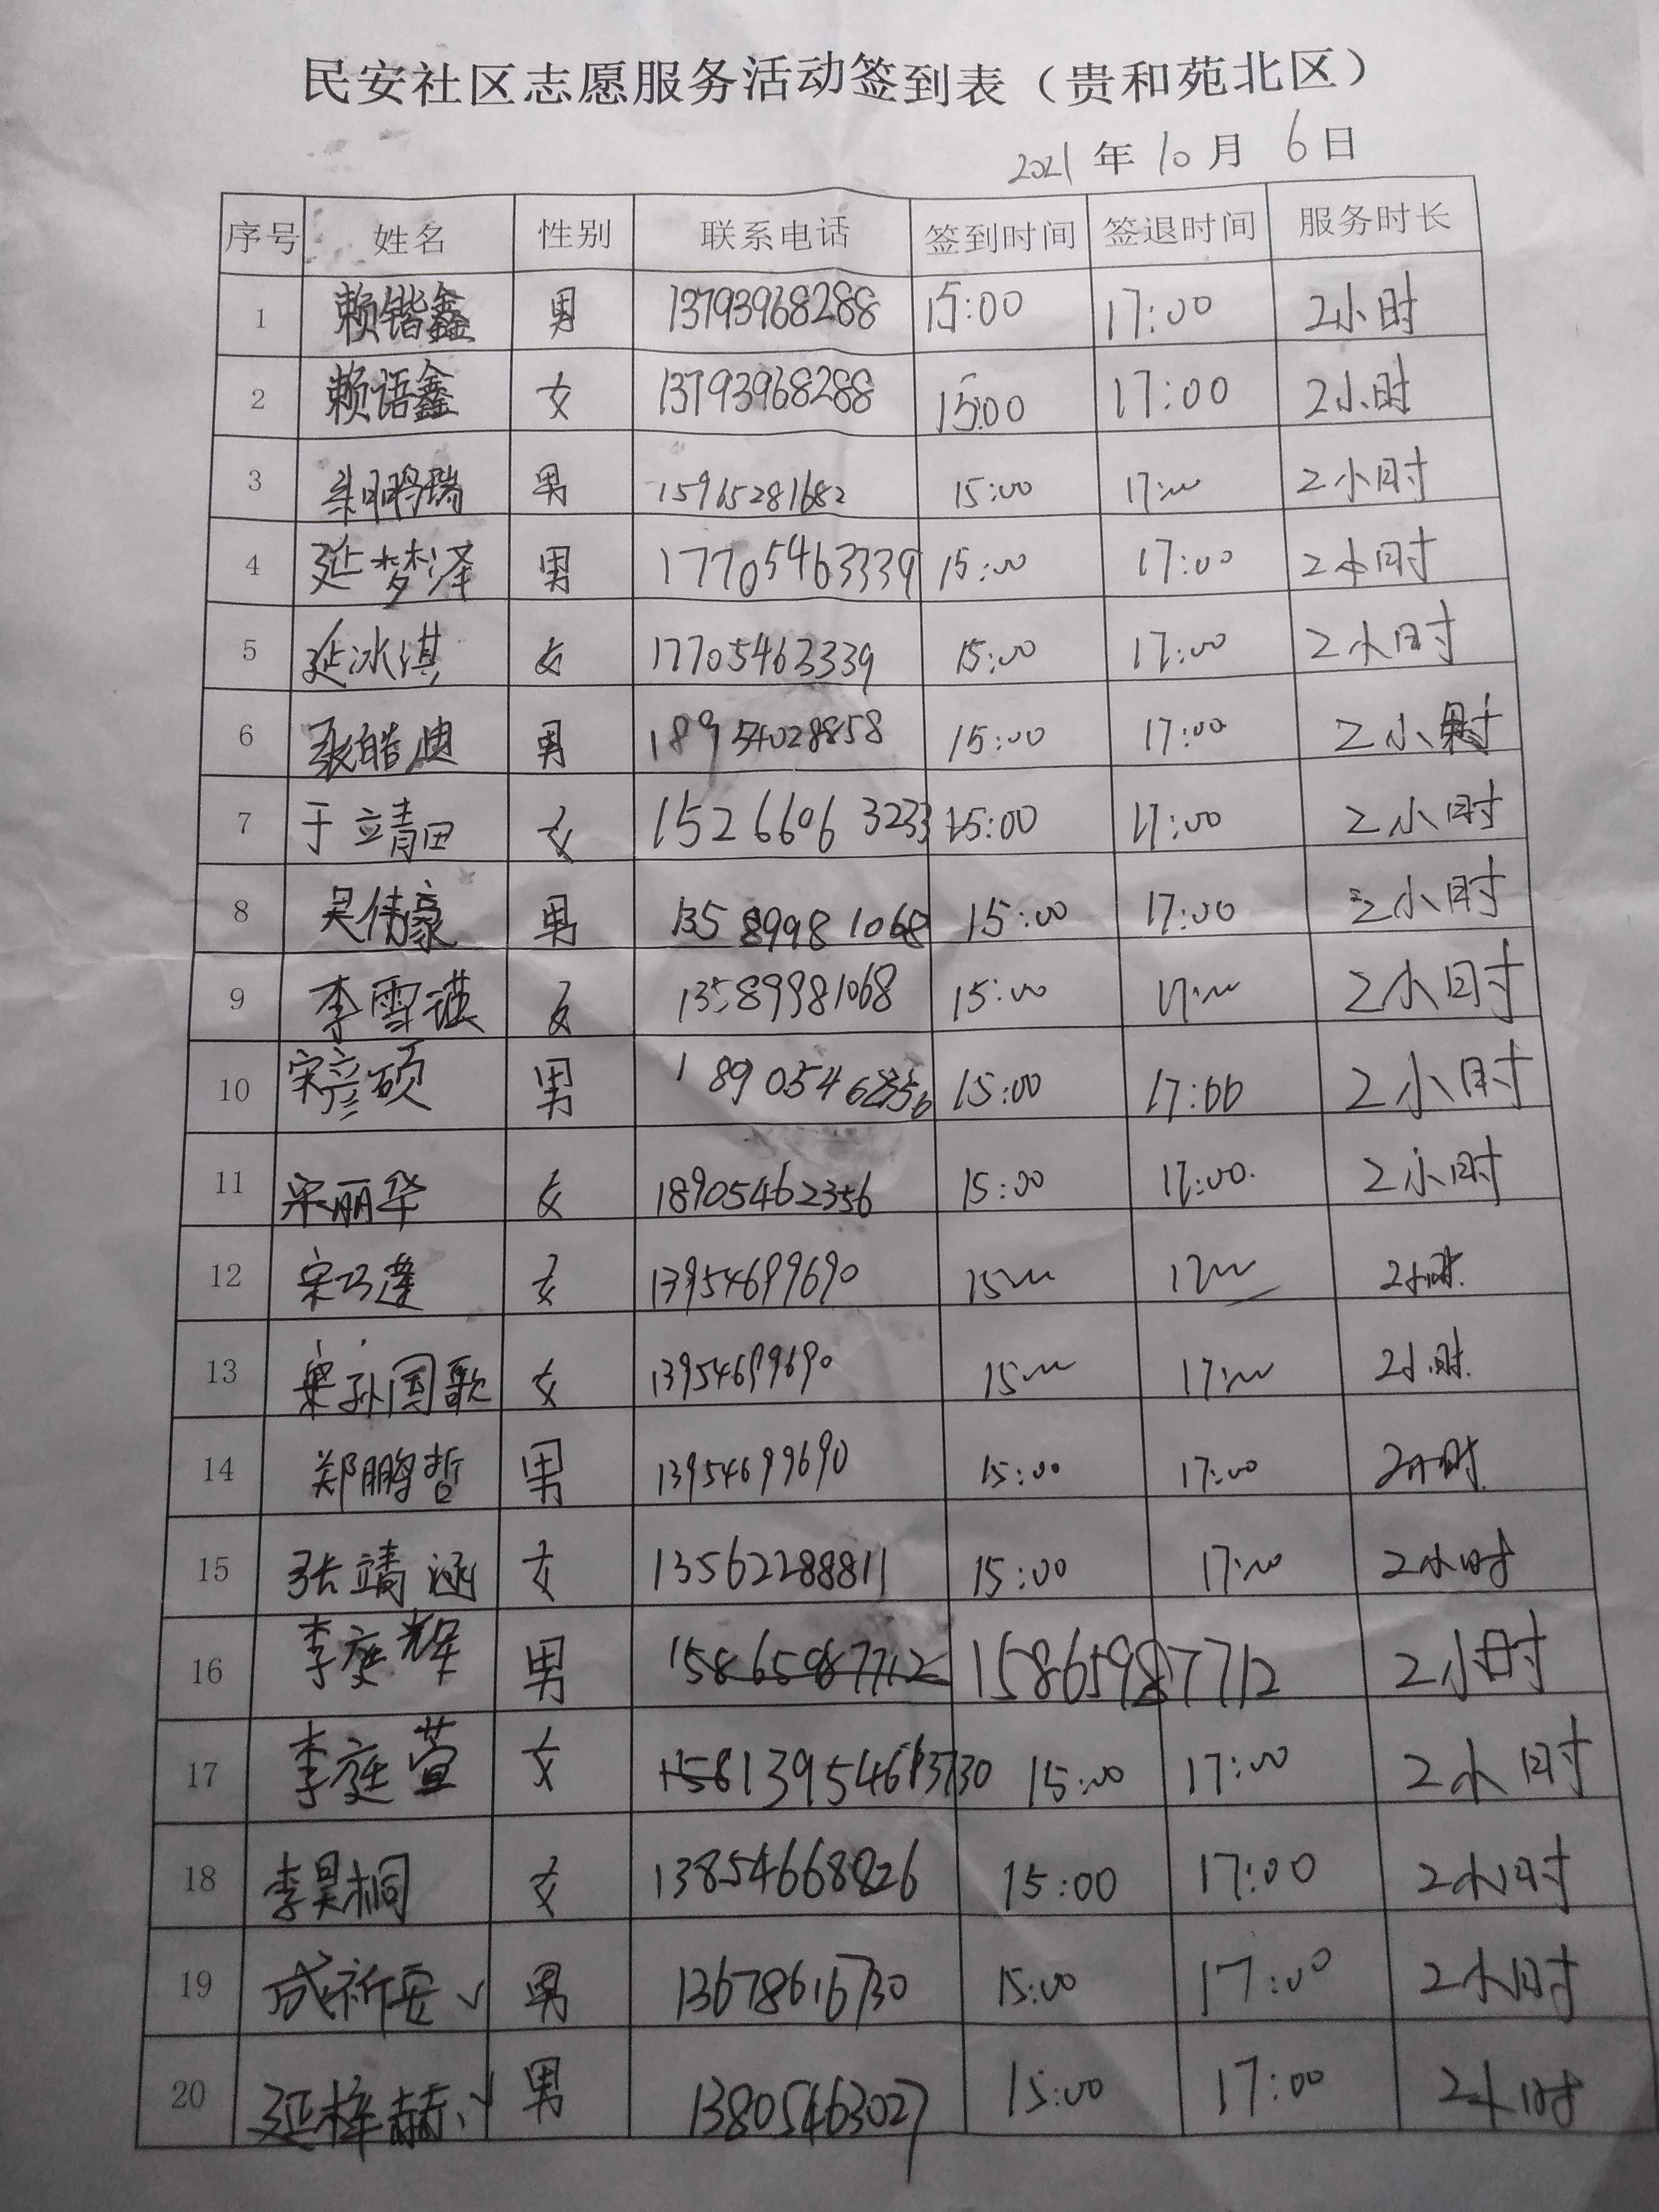 民安社区志愿服务活动签到表（贵和苑北区）
2021年10月6日
序号 姓名 性别 联系电话 签到时间 签退时间 服务时长
1 赖锴鑫 男 13793968288 15:00 17:00 2小时
2 赖语鑫 女 13793968288 15:00 17:00 2小时
3 男 15965281682 15:00 17:00 2小时
4 延梦泽 男 17705463339 15:00 17:00 2小时
5 延冰淇 女 17705463339 15:00 17:00 2小时
6 男 18954028858 15:00 17:00 2小时
7 于靖田 女 15266063233 15:00 17:00 2小时
8 吴伟豪 男 13589981068 15:00 17:00 2小时
9 李雪祺 女 13589981068 15:00 17:00 2小时
10 宋彦硕 男 15:00 17:00 2小时
11 宋丽华 女 18905462356 15:00 17:00 2小时
12 宋巧莲 女 13954699690 15:00 17:00 2小时
13 国歌 女 13954699690 15:00 17:00 2小时
14 郑鹏哲 男 13954699690 15:00 17:00 2小时
15 张靖涵 女 13562288811 15:00 17:00 2小时
16 李庭辉 男 15865987712 15865987712 2小时
17 李庭萱 女 15:00 17:00 2小时
18 李昊桐 女 13854668826 15:00 17:00 2小时
19 成祈安 男 13678616730 15:00 17:00 2小时
20 延梓赫 男 13805463027 15:00 17:00 2小时